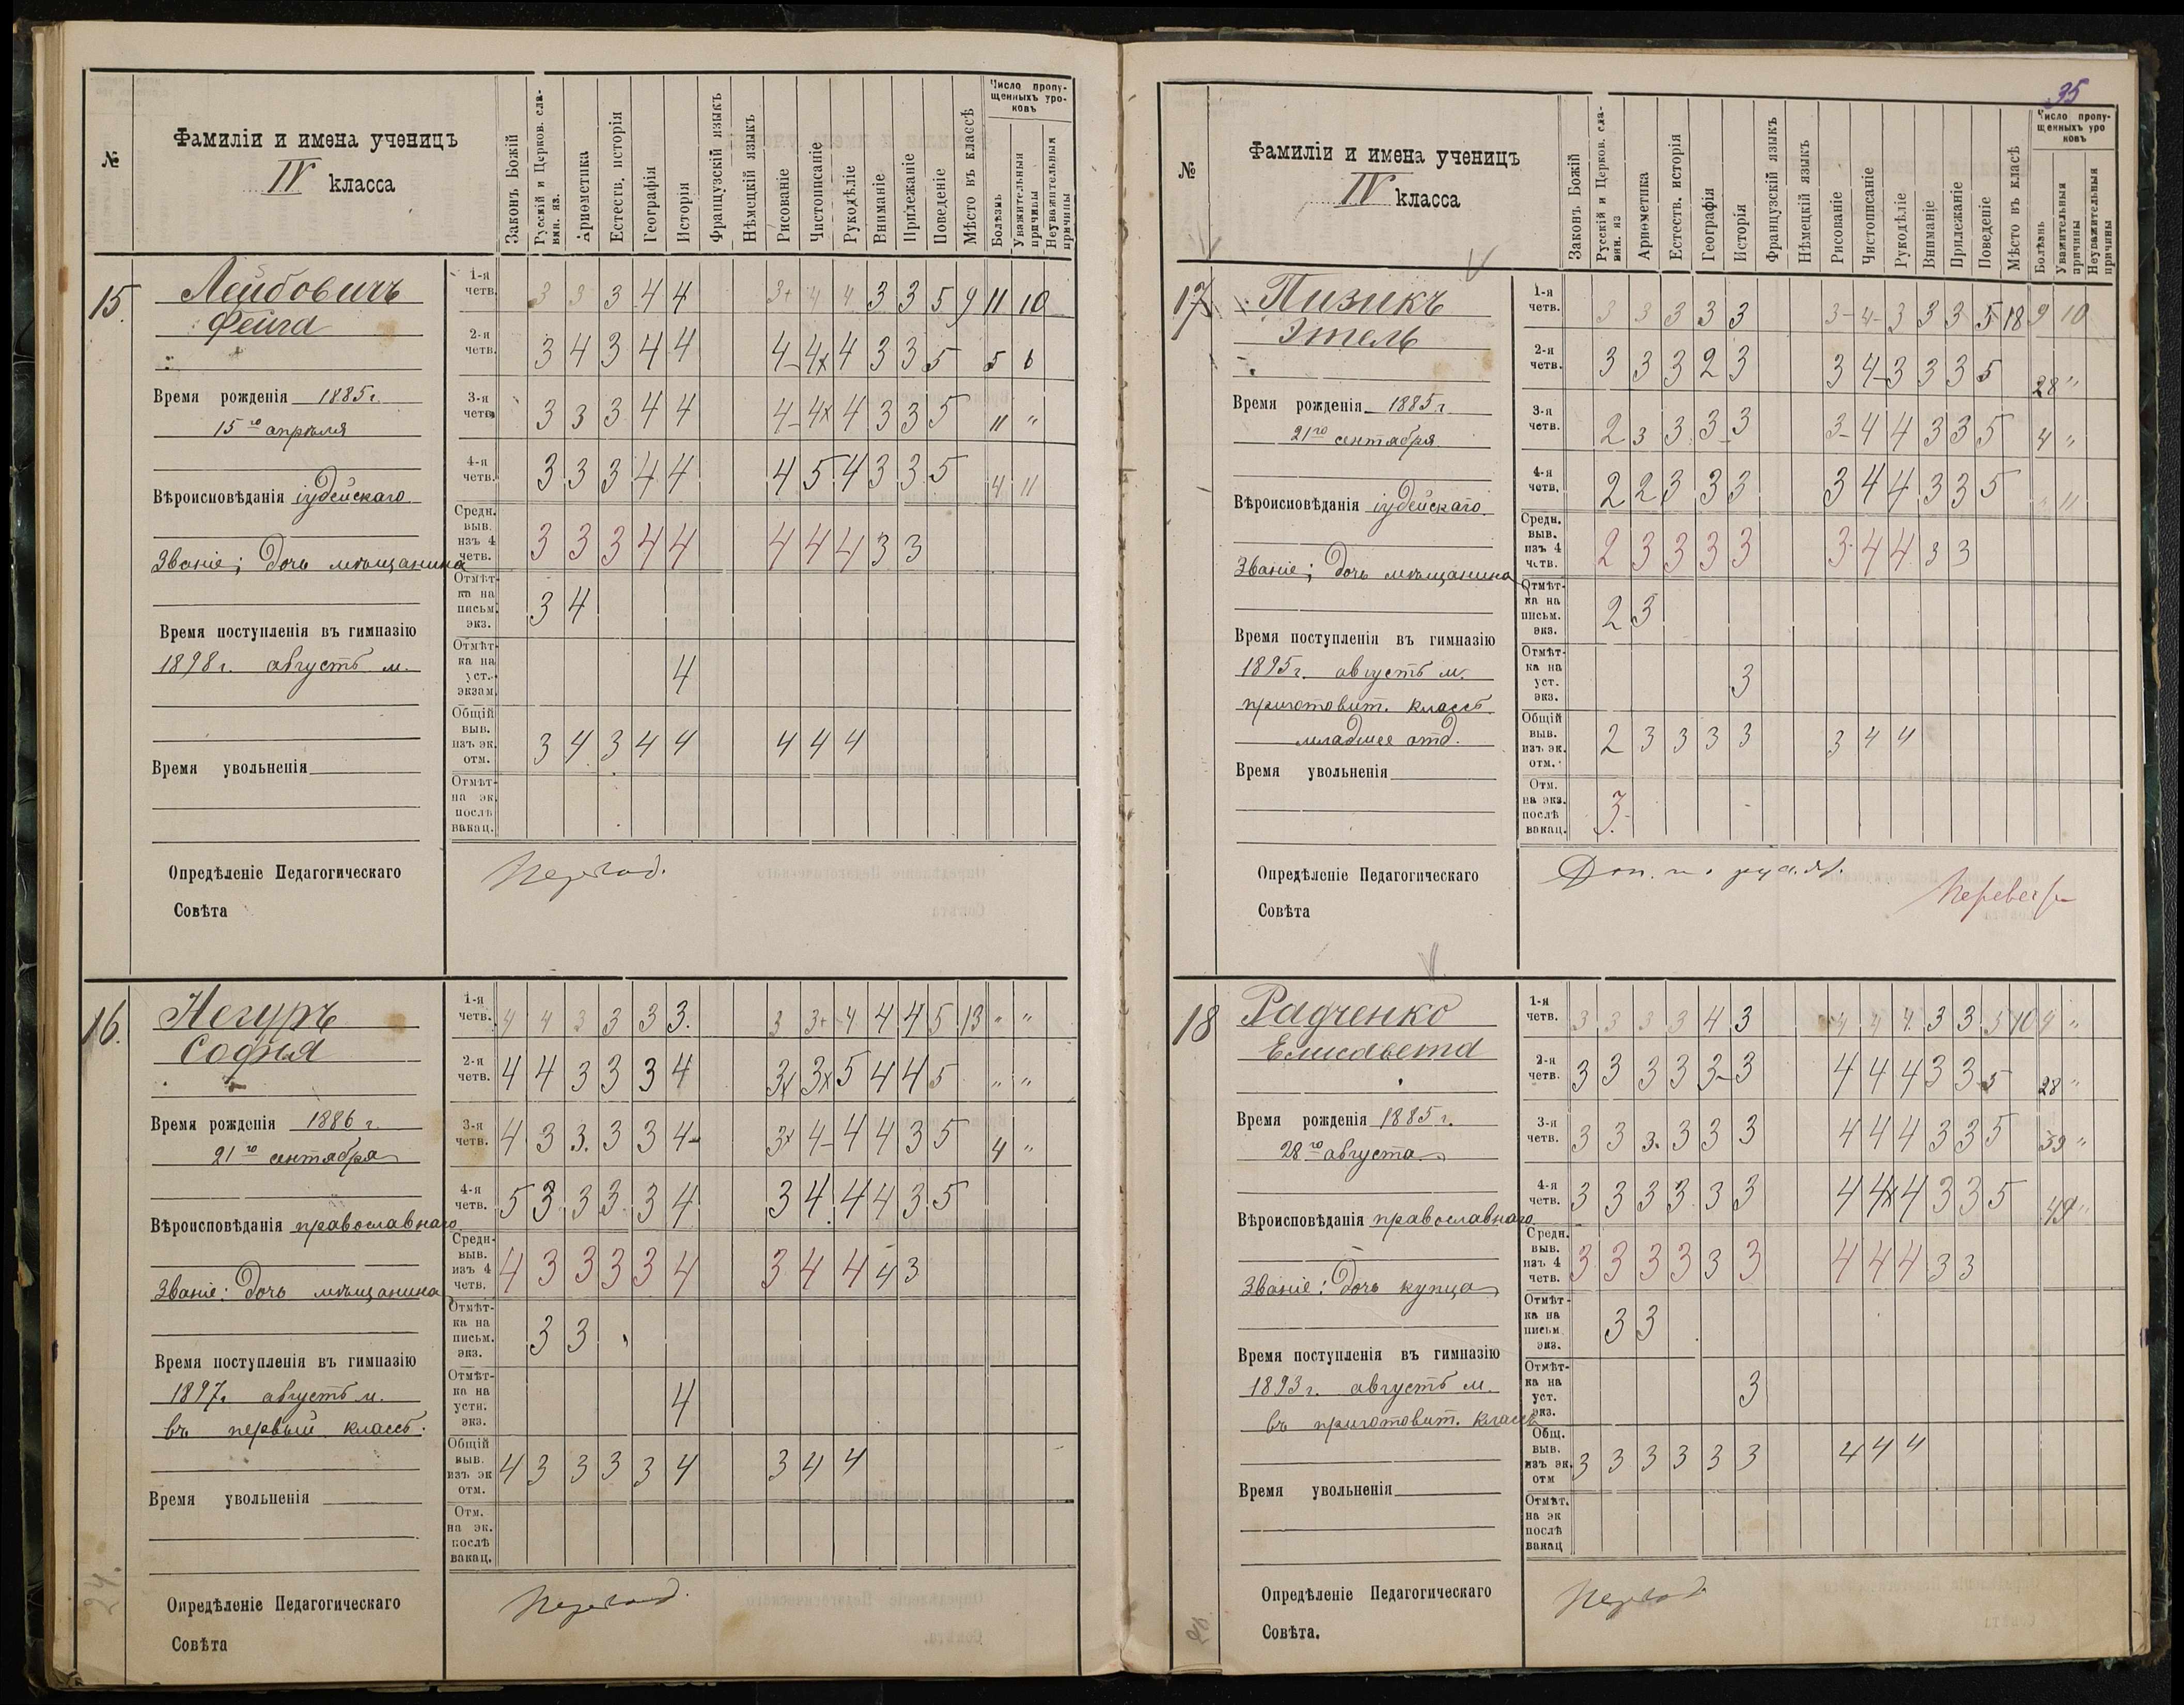 №
Фамиліи и имена ученицъ
IV класса
Законъ Божій
Русскій и Церков. сла-
вян. яз.
Ариөметика
Естеств. исторія
Географія
Исторія
Французскій языкъ
Нѣмецкій языкъ
Рисованіе
Чистописаніе
Рукодѣліе
Вниманіе
Прилежаніе
Поведеніе
Мѣсто въ классѣ
Число пропу-
щенныхъ уро-
ковъ
Болѣзнь
Уважительныя
причины
Неуважительныя
причины
15.
Лейбовичъ
Фейга
Время рожденія 1885 г.
15го апрѣля
Вѣроисповѣданія іудейскаго
Званіе; дочь мѣщанина
Время поступленія въ гимназію
1898 г. августъ м.
Время увольненія
1-я четв. 3 3 3 4 4 3+ 4 4 3 3 5 9 11 10
2-я четв. 3 4 3 4 4 4- 4х 4 3 3 5 5 6
3-я четв. 3 3 3 4 4 4- 4х 4 3 3 5 11 "
4-я четв. 3 3 3 4 4 4 5 4 3 3 5 4 11
Средн. выв. изъ 4 четв. 3 3 3 4 4 4 4 4 3 3
Отмѣт-ка на письм. экз. 3 4
Отмѣт-ка на уст. экзам. 4
Общій выв. изъ эк. отм. 3 4 3 4 4 4 4 4
Отмѣт- на эк. послѣ вакац.
Опредѣленіе Педагогическаго
Совѣта
Перевод.
16.
Негуръ
София
Время рожденія 1886 г.
21го сентября
Вѣроисповѣданія православнаго
Званіе: дочь мѣщанина
Время поступленія въ гимназію
1897 г. августъ м.
въ первый классъ.
Время увольненія
1-я четв. 4 4 3 3 3 3. 3 3+ 4 4 4 5 13 " "
2-я четв. 4 4 3 3 3 4 3х 3х 5 4 4 5 " "
3-я четв. 4 3 3. 3 3 4- 3х 4- 4 4 3 5 4 "
4-я четв. 5 3 3 3 3 4 3 4 4 4 3 5
Средн. выв. изъ 4 четв. 4 3 3 3 3 4 3 4 4 4 3
Отмѣт-ка на письм. экз. 3 3
Отмѣт-ка на устн. экз. 4
Общій выв. изъ эк отм. 4 3 3 3 3 4 3 4 4
Отм. на эк. послѣ вакац.
Опредѣленіе Педагогическаго
Совѣта
Перевод.
24.
35
№
Фамиліи и имена ученицъ
IV класса
Законъ Божій
Русскій и Церков. сла-
вян. яз
Ариөметика
Естеств. исторія
Географія
Исторія
Французскій языкъ
Нѣмецкій языкъ
Рисованіе
Чистописаніе
Рукодѣліе
Вниманіе
Прилежаніе
Поведеніе
Мѣсто въ класѣ
Число пропу-
щенныхъ уро
ковъ
Болѣзнь
Уважительныя
причины
Неуважительныя
причины
17
Пизикъ
Этель
Время рожденія 1885 г.
21го сентября
Вѣроисповѣданія іудейскаго
Званіе; дочь мѣщанина
Время поступленія въ гимназію
1895 г. августъ м.
приготовит. классъ
младшее отд.
Время увольненія
1-я четв. 3 3 3 3 3 3- 4- 3 3 3 5 18 9 10
2-я четв. 3 3 3 2 3 3 4- 3 3 3 5 28 "
3-я четв. 2 3 3 3- 3 3- 4 4 3 3 5 4 "
4-я четв. 2 2 3 3 3 3 4 4 3 3 5 " 11
Средн. выв. изъ 4 четв. 2 3 3 3 3 3 4 4 3 3
Отмѣт-ка на письм. экз. 2 3
Отмѣт-ка на уст. экз. 3
Общій выв. изъ эк. отм. 2 3 3 3 3 3 4 4
Отм. на экз. послѣ вакац. 3
Опредѣленіе Педагогическаго
Совѣта
18
Радченко
Елисавета
Время рожденія 1885 г.
28го августа
Вѣроисповѣданія православнаго
Званіе: дочь купца
Время поступленія въ гимназію
1893 г. августъ м.
въ приготовит. классъ
Время увольненія
1-я четв. 3 3 3 3 4 3 4 4 4. 3 3 5 10 9 "
2-я четв. 3 3 3 3 3- 3 4 4 4 3 3 5 28 "
3-я четв. 3 3 3. 3 3 3 4 4 4 3 3 5 39 "
4-я четв. 3 3 3 3 3 3 4 4х 4 3 3 5 49 "
Средн. выв. изъ 4 четв. 3 3 3 3 3 3 4 4 4 3 3
Отмѣт-ка на письм. экз. 3 3
Отмѣт-ка на уст. экз. 3
Общ. выв. изъ эк. отм 3 3 3 3 3 3 4 4 4
Отмѣт. на эк послѣ вакац
Опредѣленіе Педагогическаго
Совѣта.
Перевод